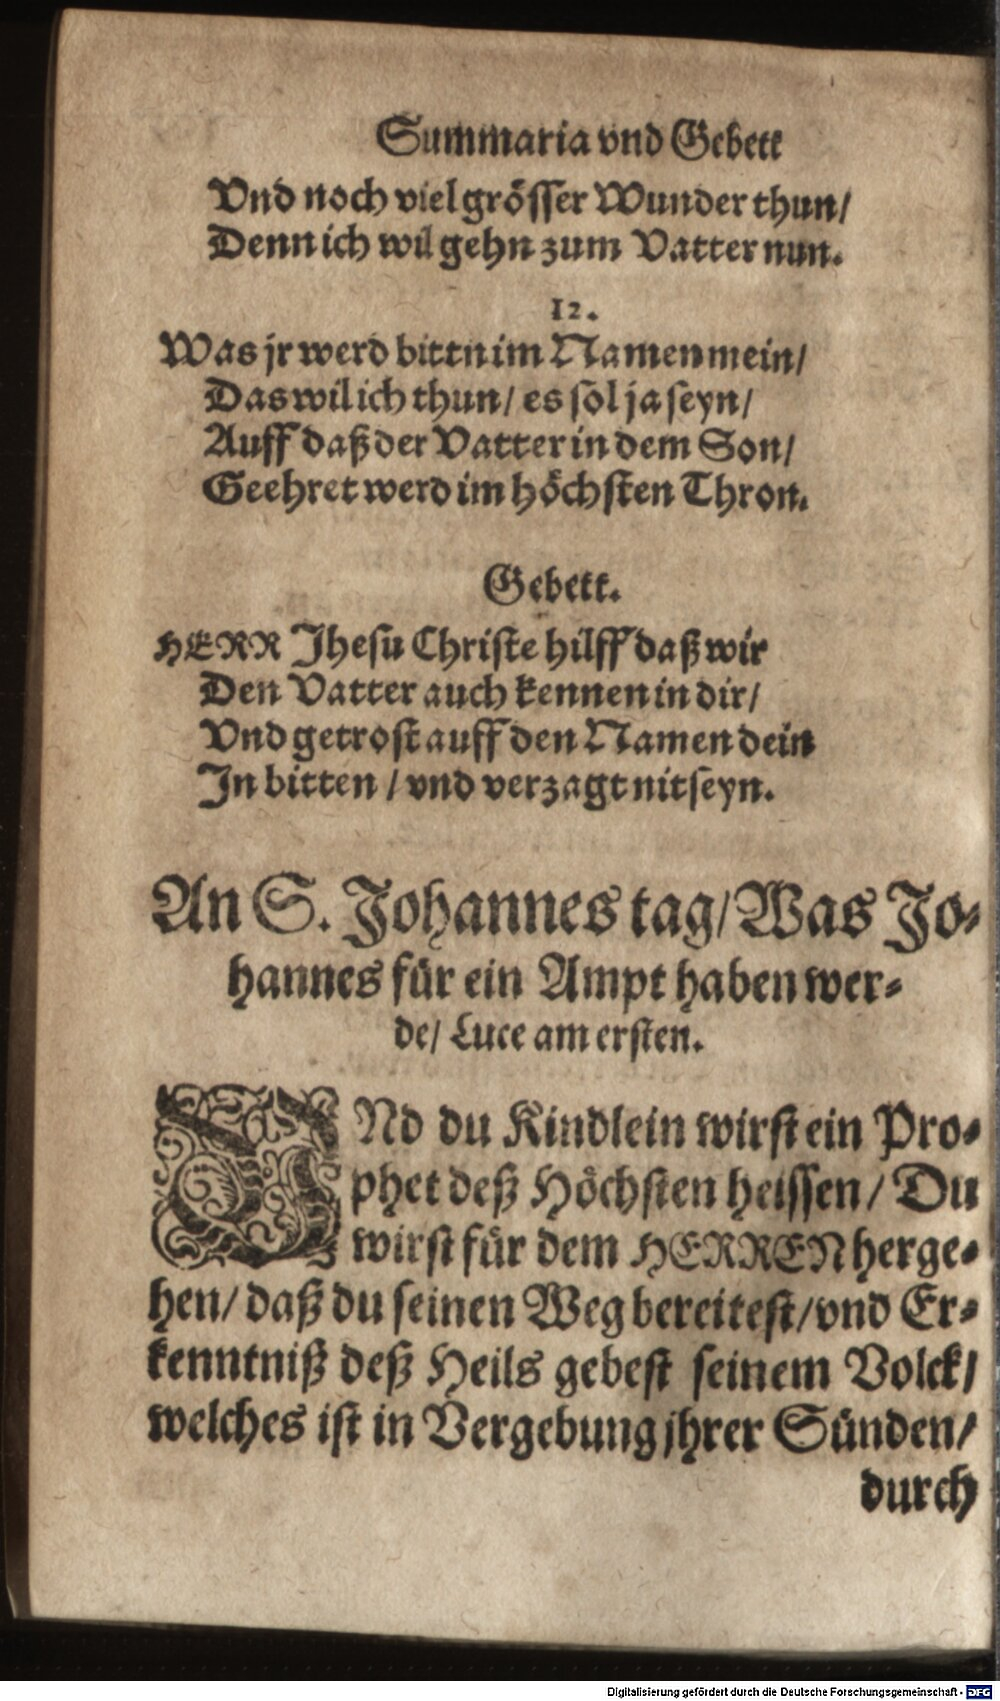 Summaria vnd Gebett
Vnd noch viel grösser Wunder thun/
Denn ich wil gehn zum Vatter nun.
12.
Was jr werd bittn im Namen mein/
Das wil ich thun/ es sol ja seyn/
Auff daß der Vatter in dem Son/
Geehret werd im höchsten Thron.
Gebett.
HERR Jhesu Christe hilff daß wir
Den Vatter auch kennen in dir/
Vnd getrost auff den Namen dein
Jn bitten / vnd verzagt nit seyn.
An S. Johannes tag/ Was Jo-
hannes für ein Ampt haben wer-
de/ Luce am ersten.
VNd du Kindlein wirst ein Pro-
phet deß Höchsten heissen/ Du
wirst für dem HERREN herge-
hen/ daß du seinen Weg bereitest/ vnd Er-
kenntniß deß Heils gebest seinem Volck/
welches ist in Vergebung jhrer Sünden/
durch
Digitalisierung gefördert durch die Deutsche Forschungsgemeinschaft - DFG